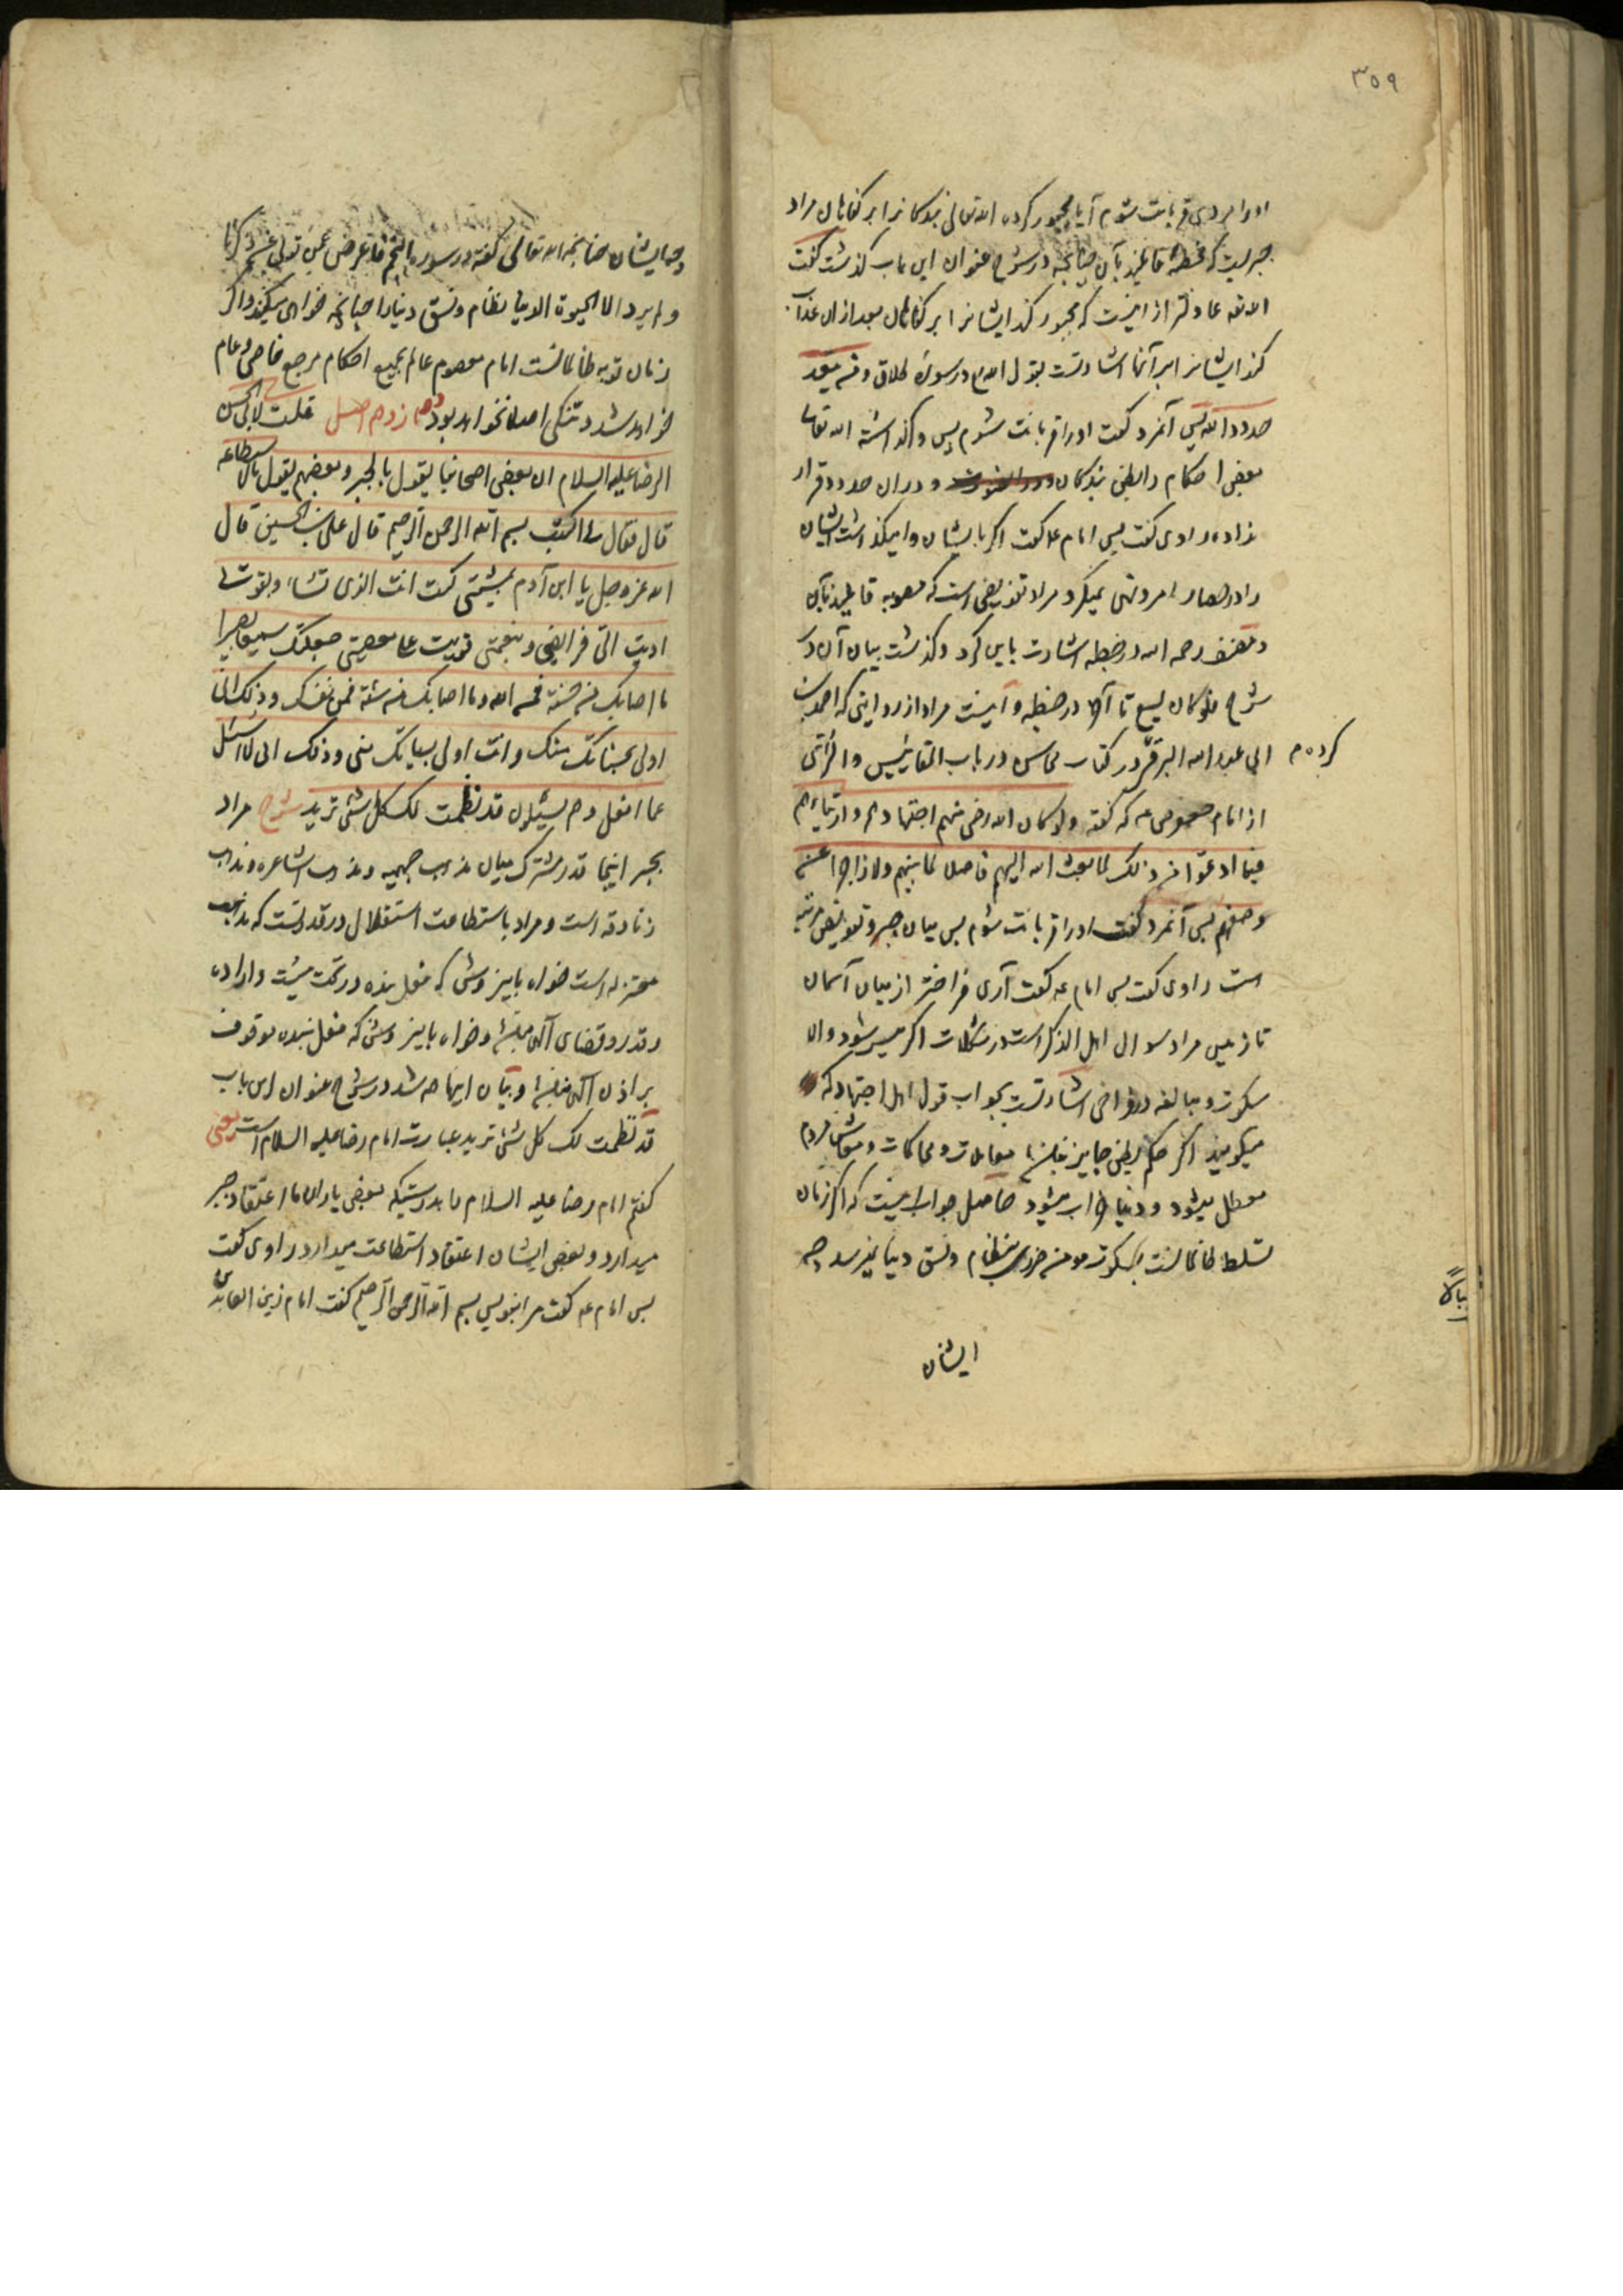 ۳۵۹
او را مردی قربانت شوم آیا مجبور کرده الله تعالی بندگانرا بر گناهان مراد
جبریست که مخطئه قایلند بآن چنانچه در شرح عنوان این باب گذشت گفت
الله تعالی عادلتر از اینست که مجبور کند ایشانرا بر گناهان بعد از ان عذاب
کند ایشانرا بر آنها اشارتست بقول الله در سوره طلاق و من یتعد
حدود الله پس آنمرد گفت او را قربانت شوم پس وا گذاشته الله تعالی
بعض احکام را بظن بندگان و در ان حدود قرار
نداده راوی گفت پس امام ع گفت اگر بایشان وامیگذاشت ایشان
را در حصار امر و نهی نمیکرد مراد تفویضی است که مصوبه قایلند بآن
و مصنف رحمه الله در خطبه اشارت باین کرد و گذشت بیان آن در
شرح فلو کان یسع تا آخر در خطبه و اینست مراد از روایتی که احمد بن
ابی عبد الله البرقی در کتاب محاسن در باب المقاییس و الرأی
کرده م
از امام که گفته ولو کان الله رضی منهم اجتهادهم و ارتیاءهم
فیما ادعوا من ذلک لما بعث الله الیهم فاصلا لما بینهم ولا زاجرا عن
وصفهم پس آنمرد گفت او را قربانت شوم پس میان جبر و تفویض مرتبه
است راوی گفت پس امام ع گفت آری فراختر از میان آسمان
تا زمین مراد سوال اهل الذکر است در مشکلات اگر میسر شود والا
سکوت و مبالغه در اشارتست بجواب قول اهل اجتهاد که
میگویند اگر حکم بظن جایز نباشد معاملات و محاکمات و معاش مردم
معطل میشود و دنیا خراب میشود حاصل جواب اینست که اگر زمان
تسلط ظالمانست بسکوت مومن ضرری بنظام و نسق دنیا نمیرسد چه
ایشان
وجه ایشان چنانچه الله تعالی گفته در سوره النجم فاعرض عمن تولی عن ذکرنا
ولم یرد الا الحیوة الدنیا نظام و نسق دنیا را چنانچه خواهی میکنند و اگر
زمان توبه ظالمانست امام معصوم عالم بجمیع احکام مرجع خاص و عام
خواهد شد و تنگی اصلا نخواهد بود دوازدهم اصل قلت لابی الحسن
الرضا علیه السلام ان بعض اصحابنا یقول بالجبر و بعضهم یقول بالاستطاعه
قال فقال لی اکتب بسم الله الرحمن الرحیم قال علی بن الحسین قال
الله عز وجل یا ابن آدم بمشیتی کنت انت الذی تشاء و بقوتی
ادیت الی فرایضی و بنعمتی قویت علی معصیتی جعلتک سمیعا بصیرا
ما اصابک من حسنة فمن الله و ما اصابک من سیئة فمن نفسک و ذلک انی
اولی بحسناتک منک و انت اولی بسیاتک منی و ذلک انی لا اسئل
عما افعل و هم یسئلون قد نظمت لک کل شئ ترید شرح مراد
بجبر اینجا قدر مشترک میان مذهب جهمیه و مذهب اشاعره و مذهب
زنادقه است و مراد باستطاعت استقلال در قدرتست که مذهب
معتزله است خواه باین روش که فعل بنده در تحت مشیت و اراده
و قدر و قضای الهی نباشد و خواه باین روش که فعل بنده موقوف
بر اذن الهی نباشد و بیان اینها شد در شرح عنوان این باب
قد نظمت لک کل شئ ترید عبارت امام رضا علیه السلام است یعنی
گفتم امام رضا علیه السلام را بدرستیکه بعض یاران ما اعتقاد جبر
میدارد و بعض ایشان اعتقاد استطاعت میدارد راوی گفت
پس امام ع گفت مرا بنویس بسم الله الرحمن الرحیم گفت امام زین العابدین